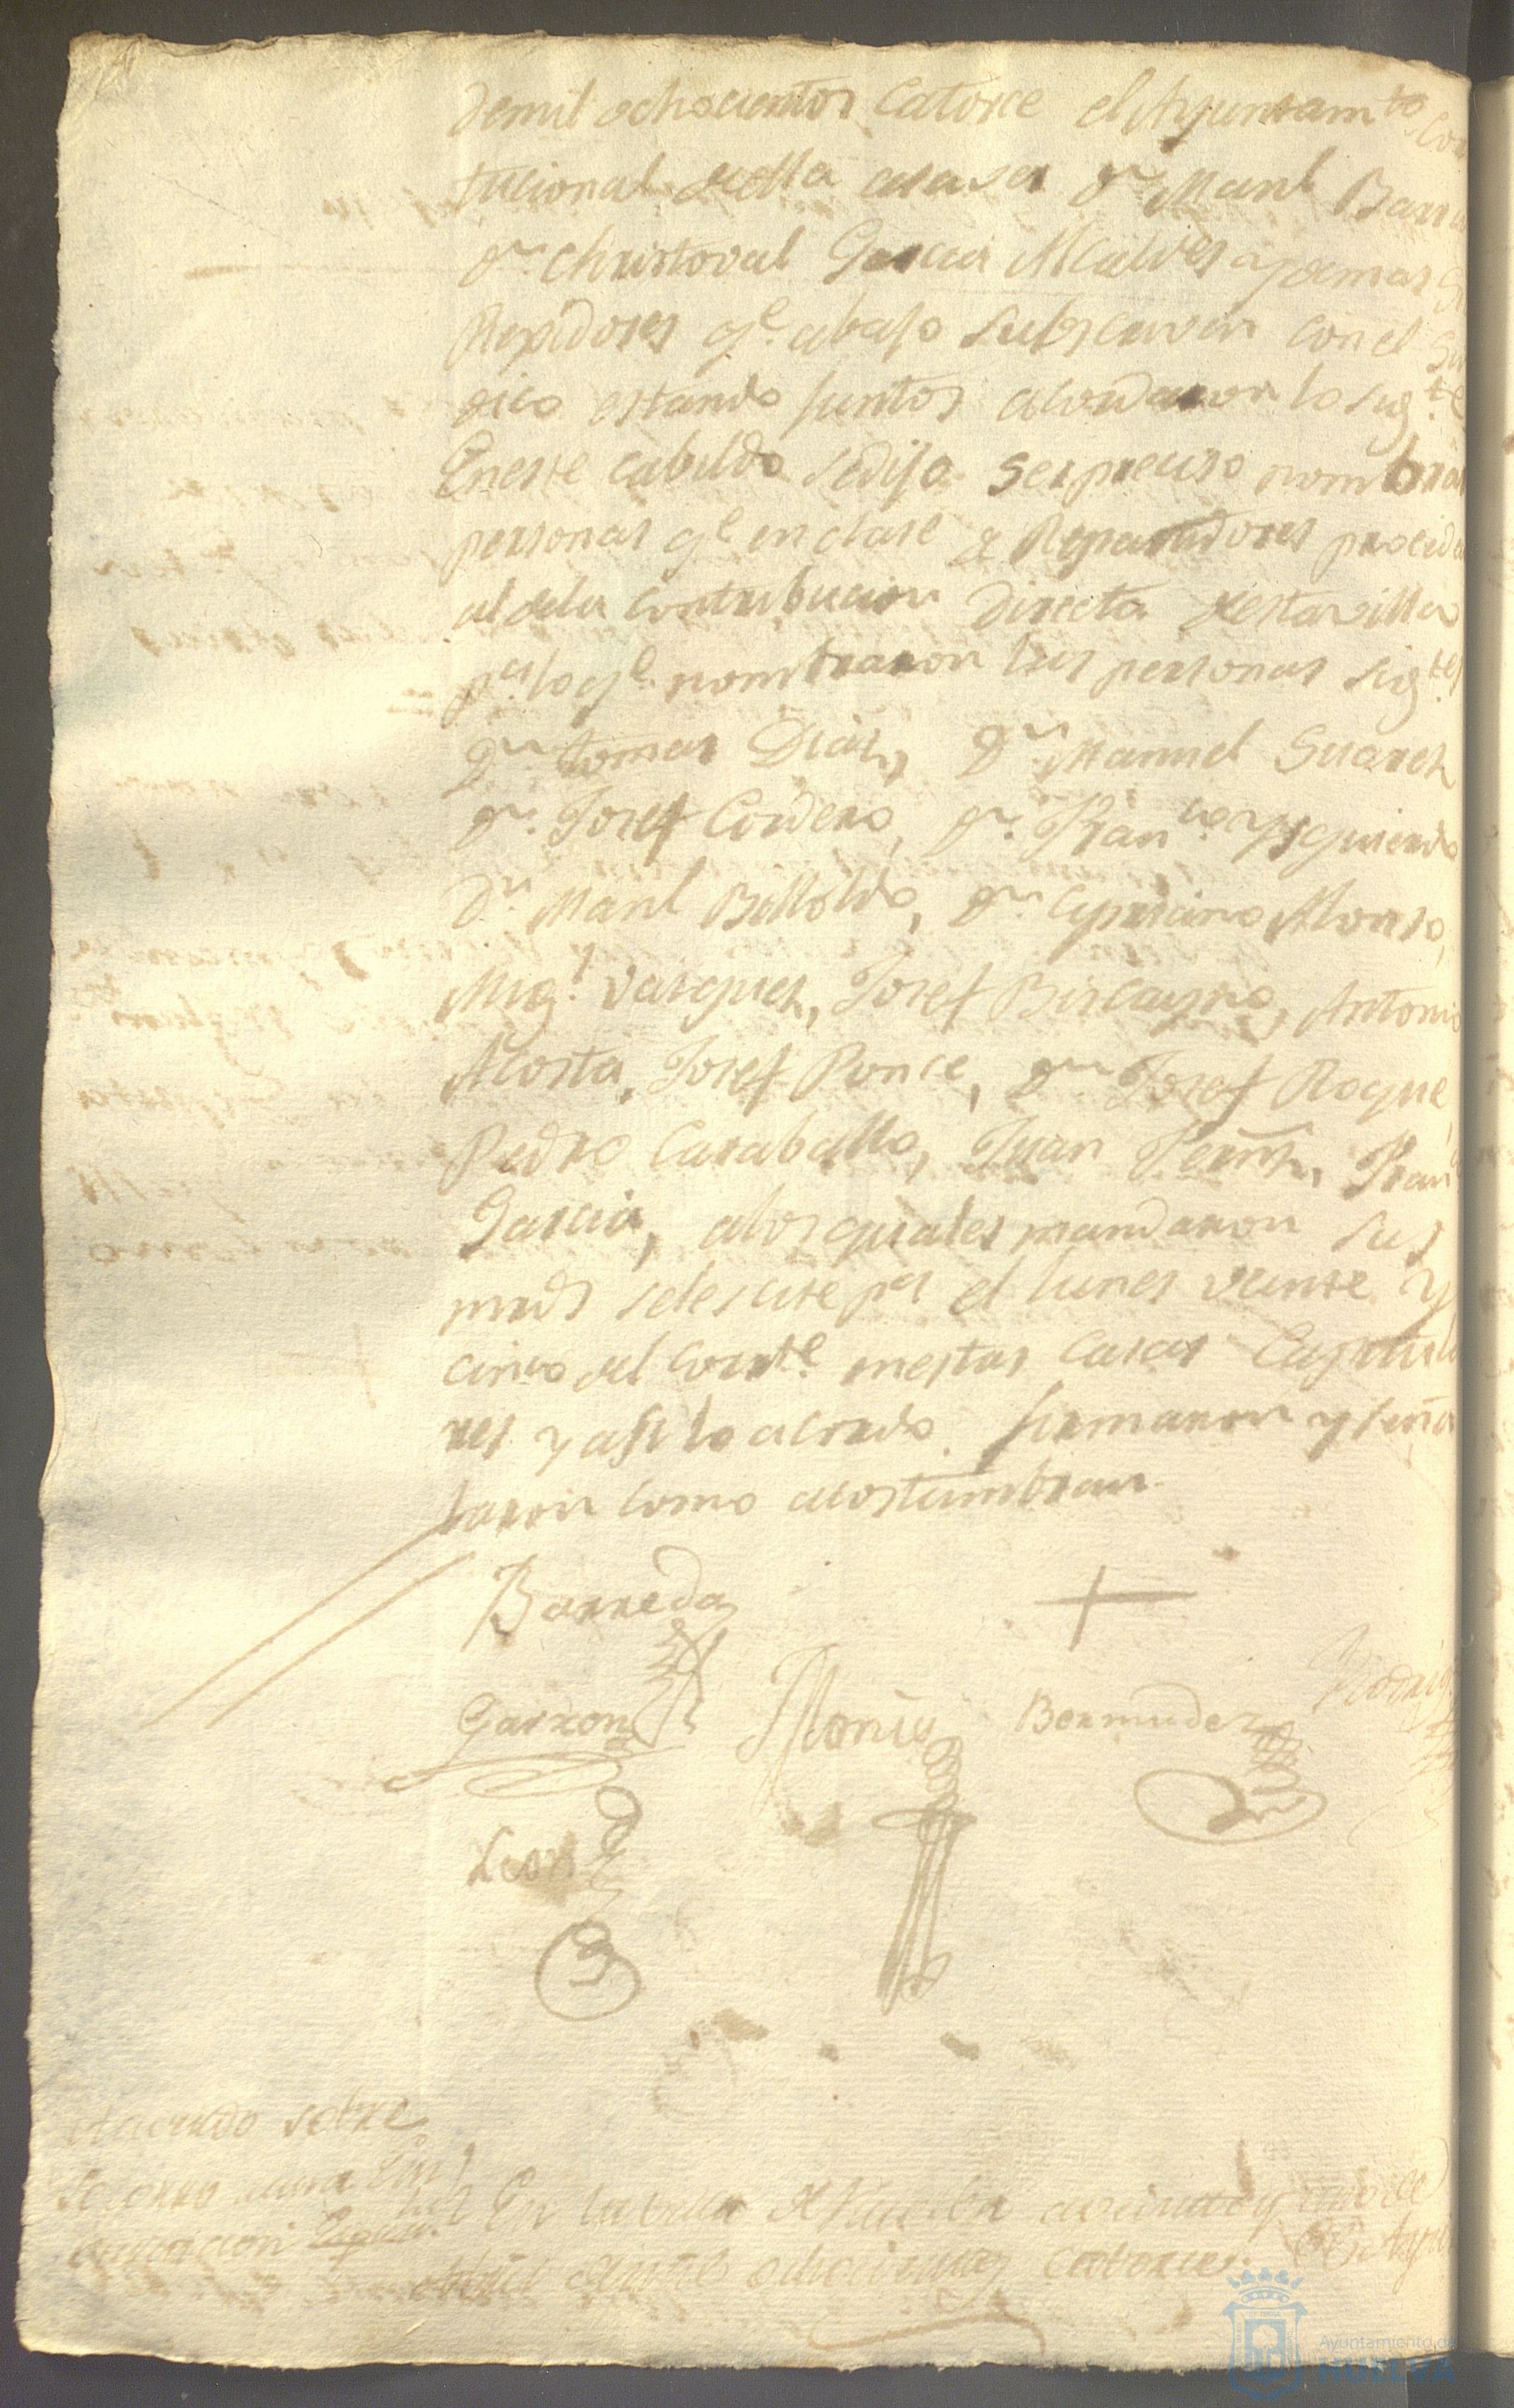 demil ochocientos Catorce el Ayuntam.to Con
tucional deella asaver D.n Manl Barre
D.n Christoval Garcia Alcaldes y demas
Rexidores q.e abajo subscriven con el Sin
dico estando juntos acordaron lo sig.te
En este cabildo sedijo ser preciso nombrar
personas q.e en clase de Repartidores proceda
al dela contribucion directa de esta villa
p.a lo q.e nombraron las personas sig.tes
D.n Tomas Dias, D.n Manuel Suarez
D.n Josef Cordero, D.n Fran.co Ysquierdo
D.n Manl Billoldo, D.n Cypriano Alonso,
Mig.l Vasques, Josef Biscayno, Antonio
Acosta, Josef Ponce, D.n Josef Roque,
Pedro Caraballo, Juan Fernz, Fran
Garcia, alos quales mandaron sus
mrds seles cite p.a el lunes veinte y
cinco del corrte. en estas Casas Capitula
res y asi lo acordo firmaron y seña
laron como acostumbran.
Barreda
Garzon Bermudez Rodrig
Leon
Acuerdo sobre
Socorro
En la villa de Huelva
ochocientos catorce El Ayun
Ayuntamiento de
HUELVA